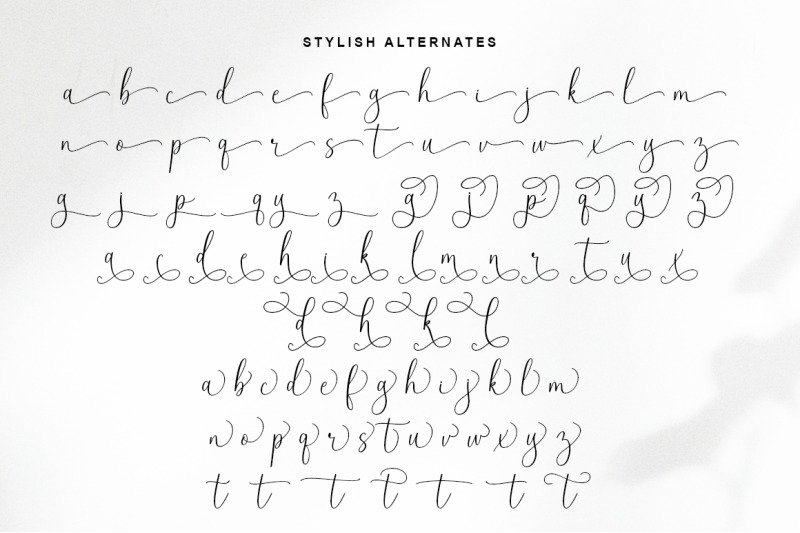 STYLISH ALTERNATES
a b c d e f g h i j k l m
n o p q r s t u v w x y z
g j p q y z g j p q y z
a c d e h i k l m n r t u x
d h k l
a b c d e f g h i j k l m
n o p q r s t u v w x y z
t t t t t t t